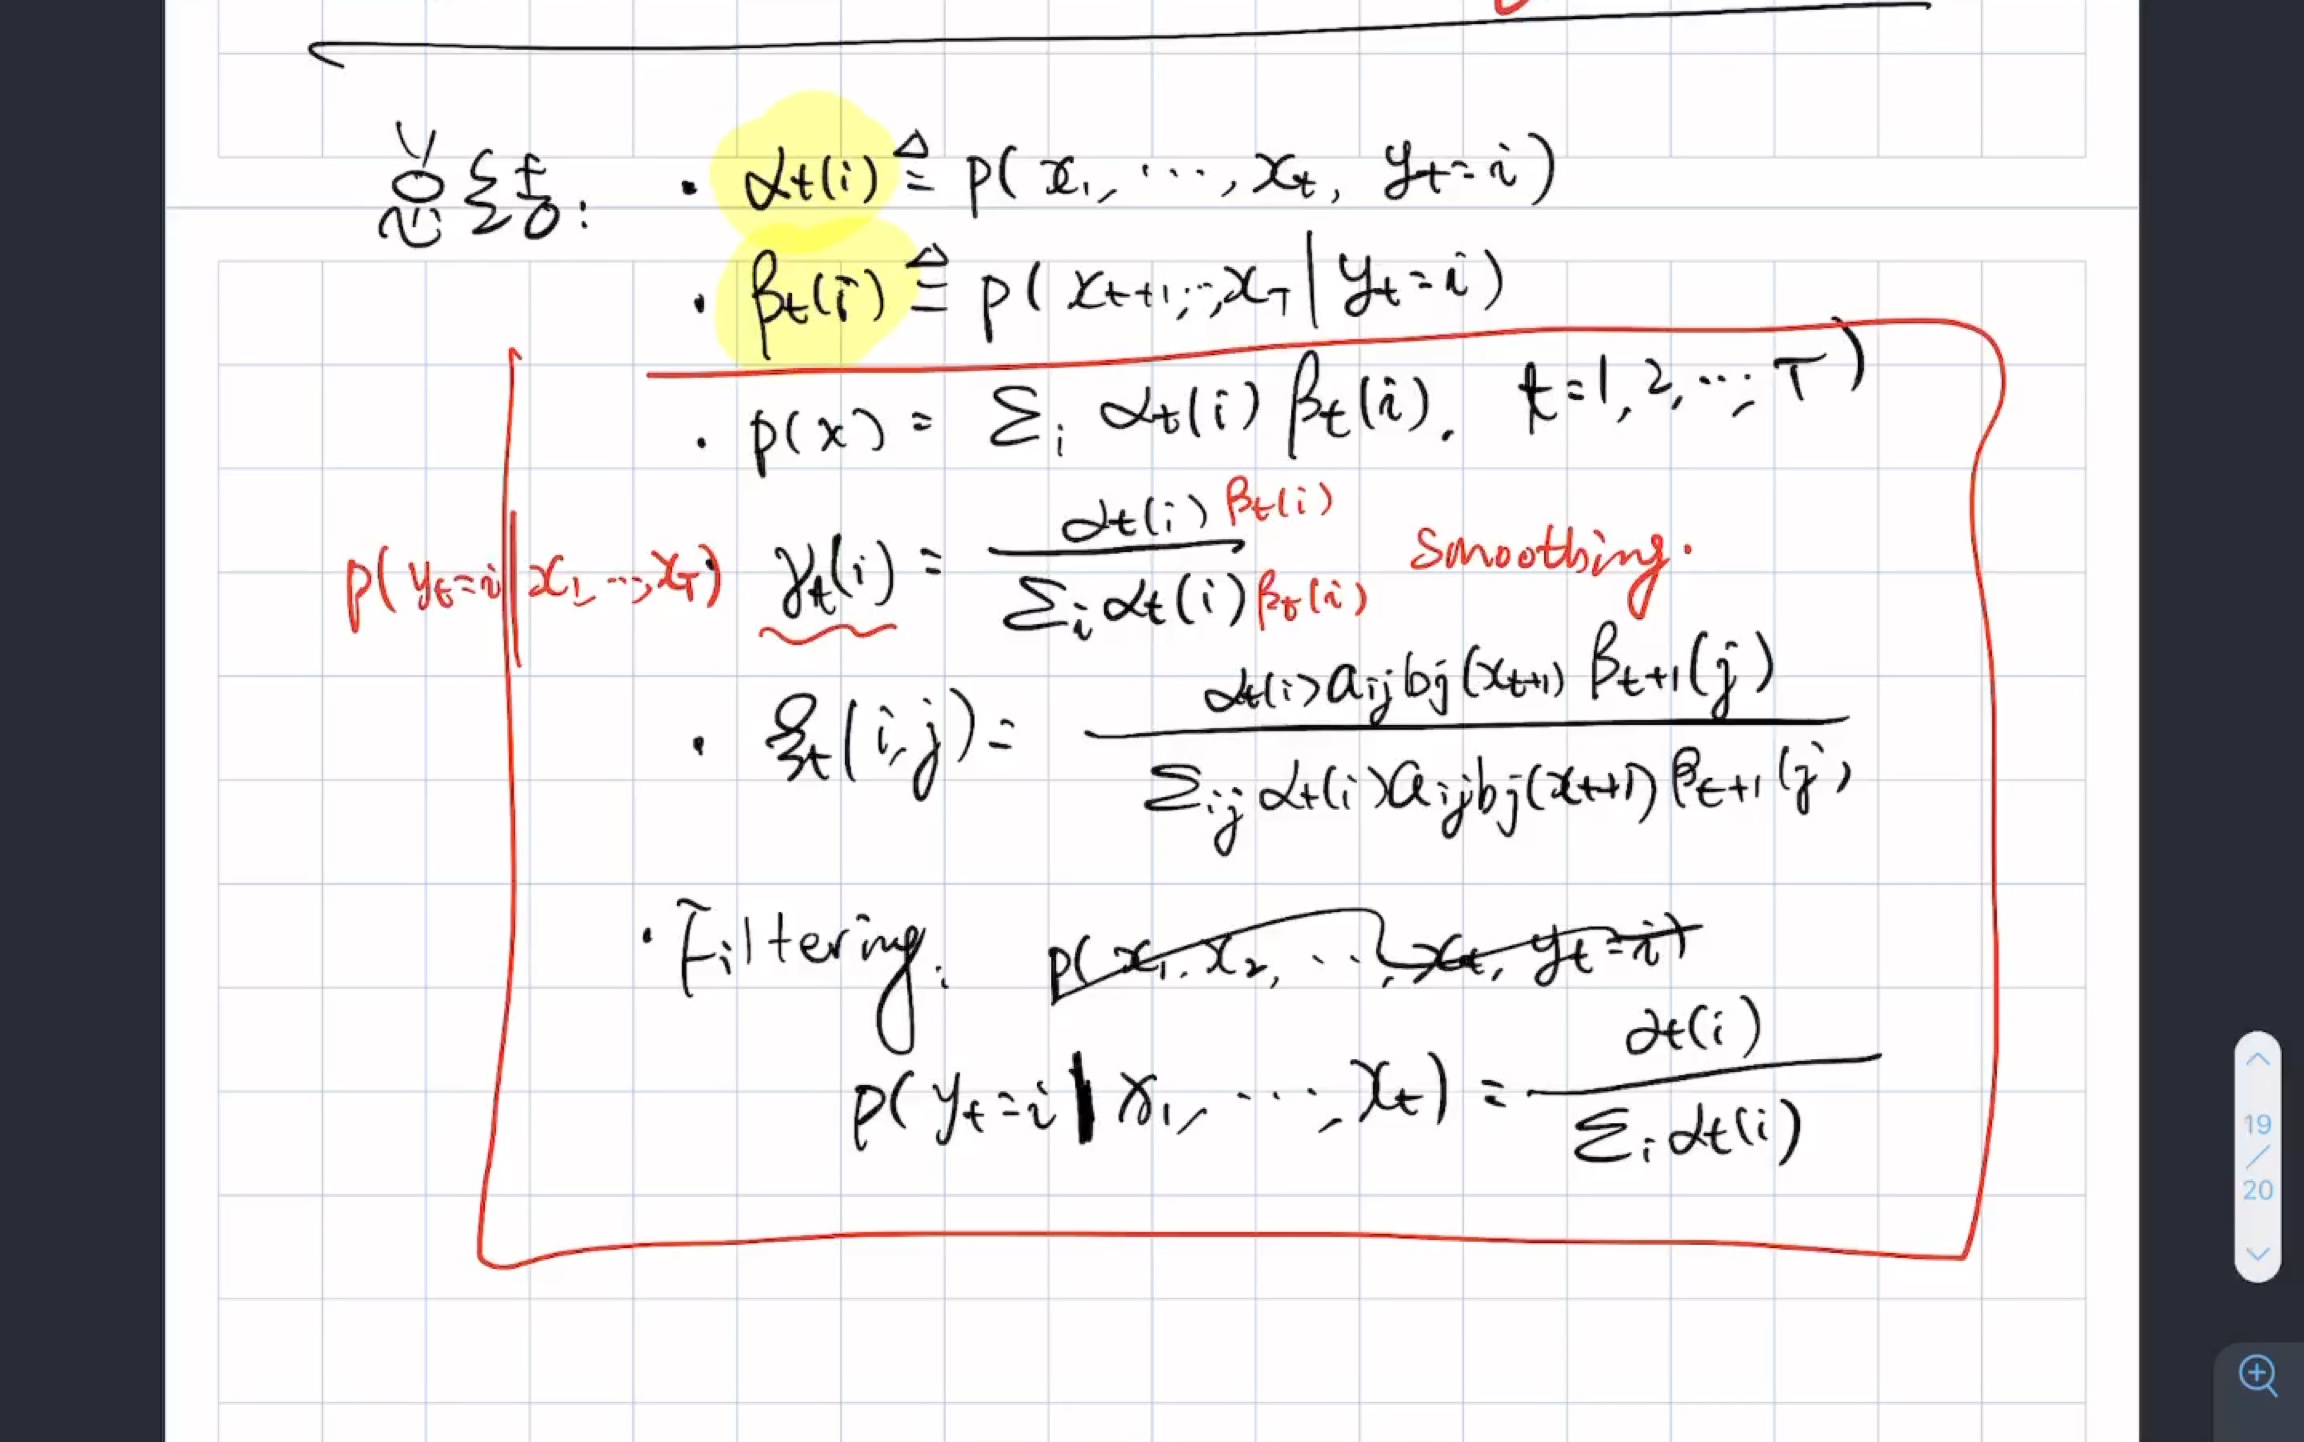 总结: · αt(i) ≜ p(x1, ..., xt, yt=i)
· βt(i) ≜ p(xt+1, .., xT | yt=i)
· p(x) = Σi αt(i) βt(i). t=1,2,...,T)
p(yt=i | x1, ..., xT) γt(i) = αt(i) βt(i) / Σi αt(i) βt(i) Smoothing.
· ξt(i,j) = αt(i) aij bj(xt+1) βt+1(j) / Σij αt(i) aij bj(xt+1) βt+1(j)
· Filtering: p(x1, x2, ..., xt, yt=i)
p(yt=i | x1, ..., xt) = αt(i) / Σi αt(i)
19
/
20